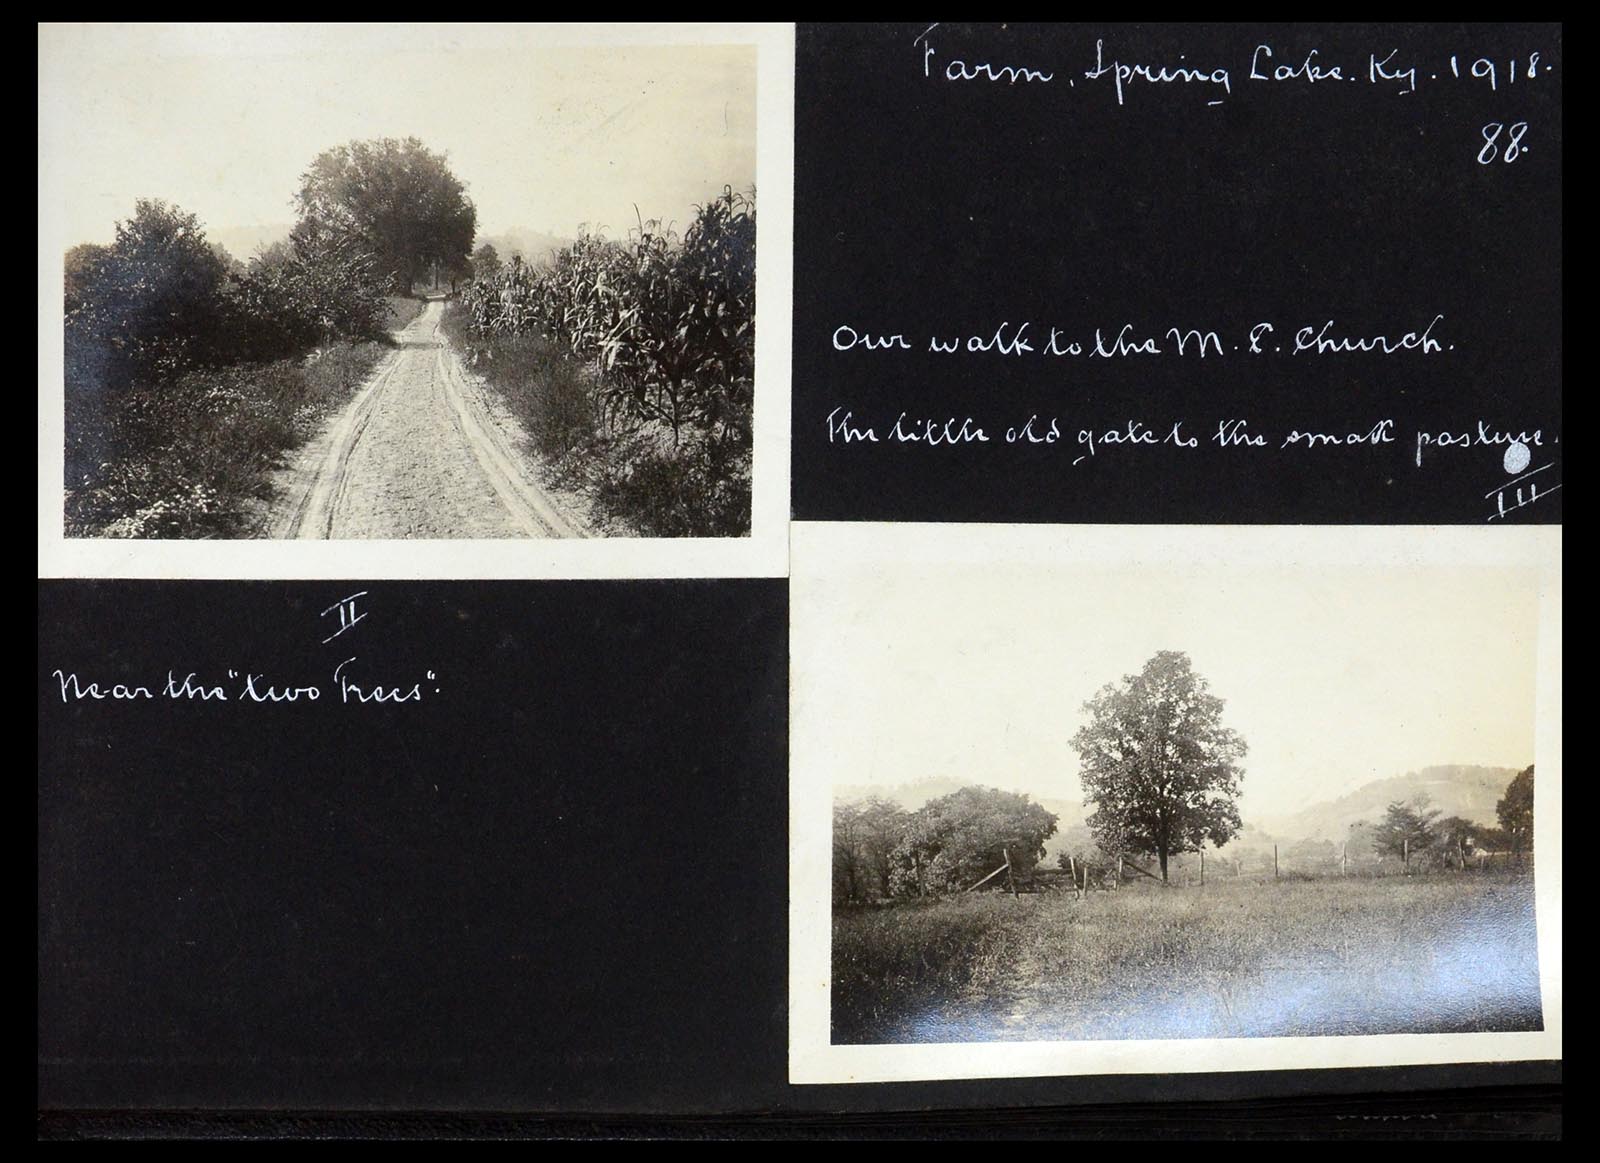 Farm, Spring Lake. Ky. 1918.
88.
Our walk to the M. E. Church.
The little old gate to the small pasture.
III
II
Near the "two Trees".